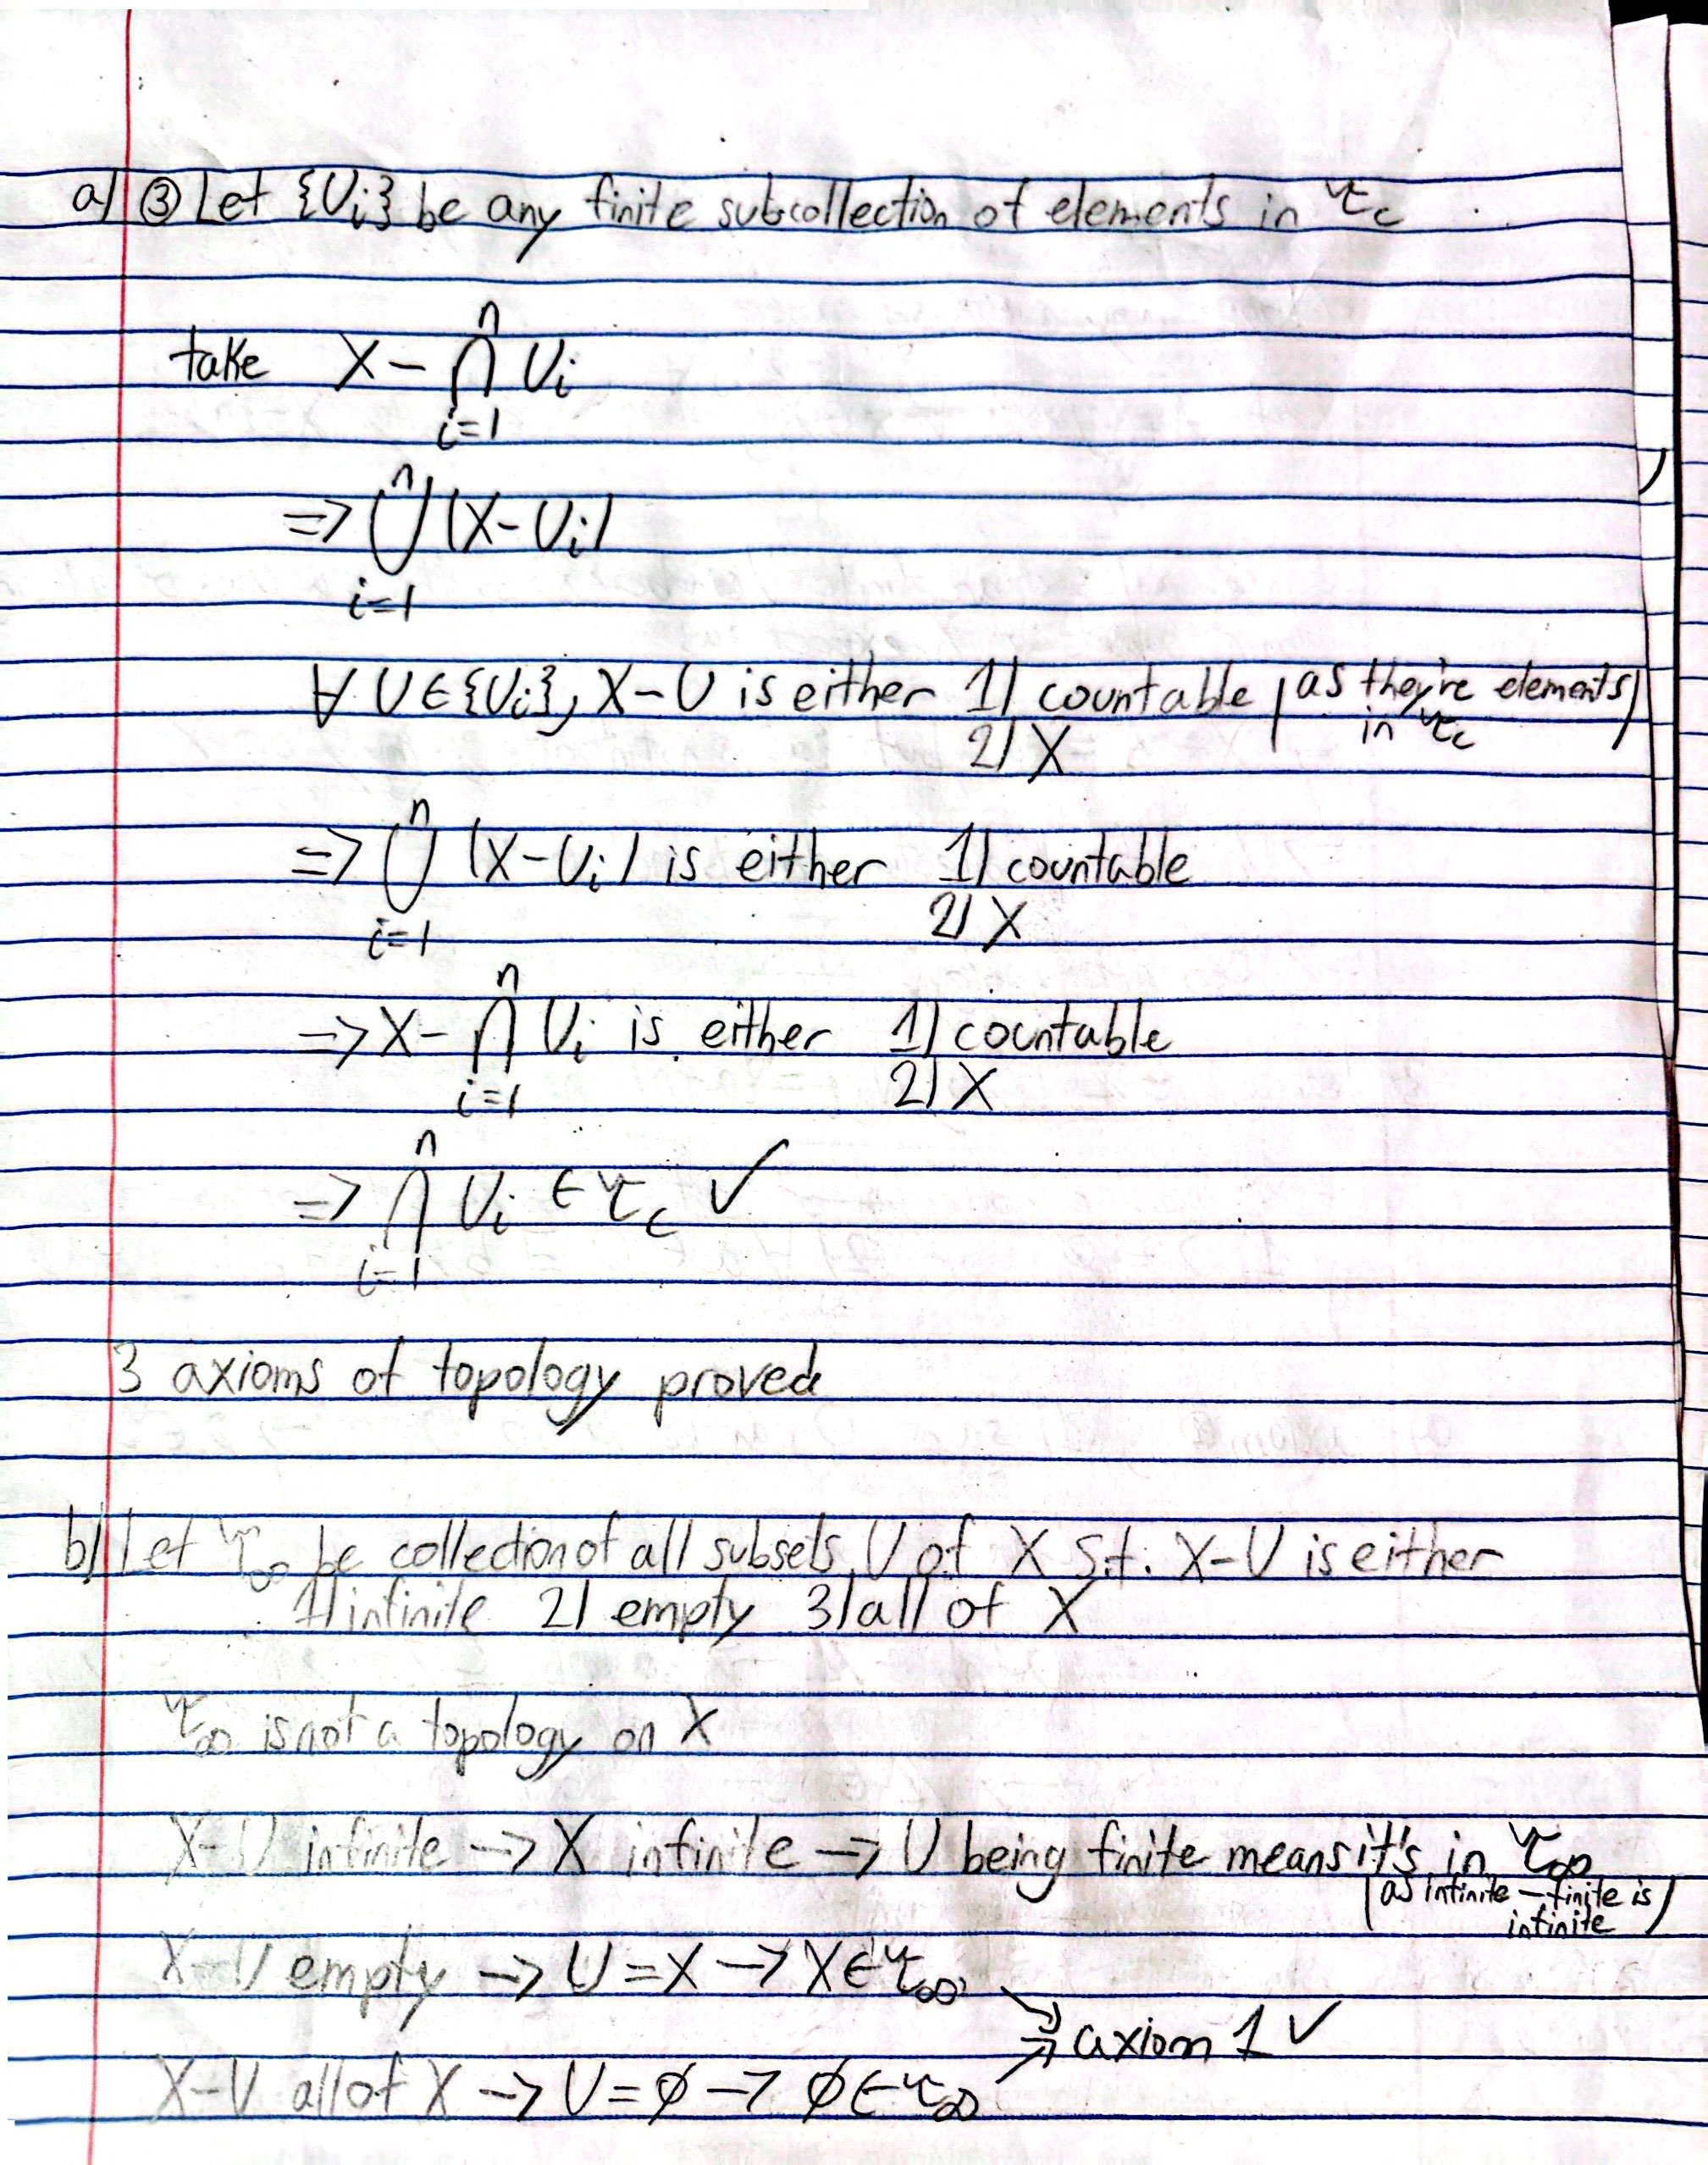 a) ③ Let {Uᵢ} be any finite subcollection of elements in 𝜏_c
take X − ⋂ᵢ₌₁ⁿ Uᵢ
=> ⋃ᵢ₌₁ⁿ (X − Uᵢ)
∀ U ∈ {Uᵢ}, X − U is either 1) countable (as they're elements in 𝜏_c)
2) X
=> ⋃ᵢ₌₁ⁿ (X − Uᵢ) is either 1) countable
2) X
=> X − ⋂ᵢ₌₁ⁿ Uᵢ is either 1) countable
2) X
=> ⋂ᵢ₌₁ⁿ Uᵢ ∈ 𝜏_c ✓
3 axioms of topology proved
b) Let 𝜏_∞ be collection of all subsets U of X s.t. X − U is either
1) infinite 2) empty 3) all of X
𝜏_∞ is not a topology on X
X − U infinite -> X infinite -> U being finite means it's in 𝜏_∞
(as infinite − finite is infinite)
X − U empty -> U = X -> X ∈ 𝜏_∞
=> axiom 1 ✓
X − U all of X -> U = ∅ -> ∅ ∈ 𝜏_∞